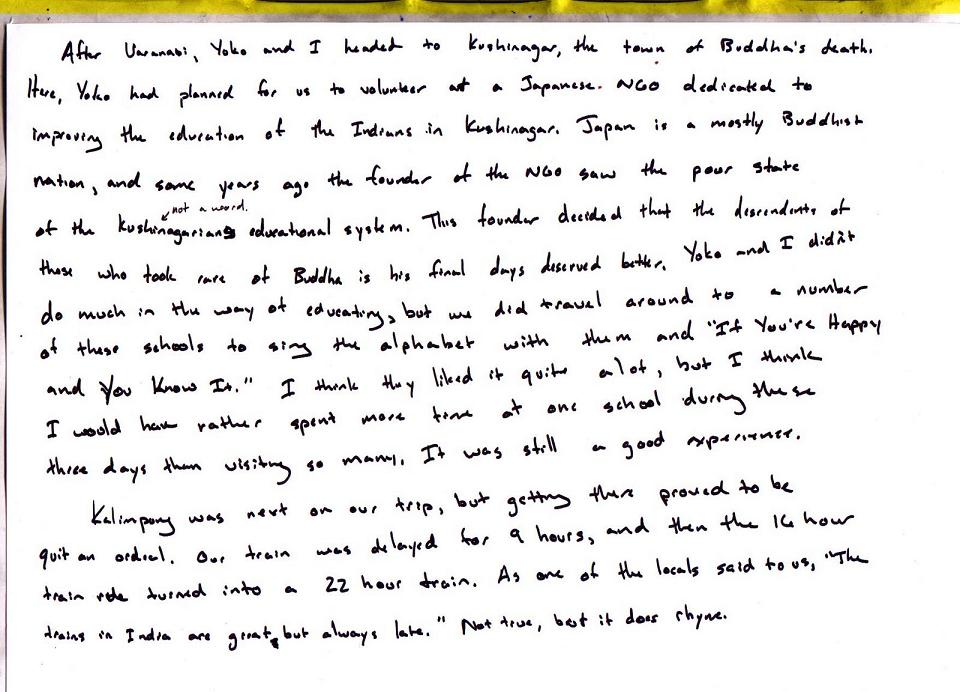 After Varanasi, Yoko and I headed to Kushinagar, the town of Buddha's death.
Here, Yoko had planned for us to volunteer at a Japanese NGO dedicated to
improving the education of the Indians in Kushinagar. Japan is a mostly Buddhist
nation, and some years ago the founder of the NGO saw the poor state
not a word.
of the Kushinagarians educational system. This founder decided that the descendents of
those who took care of Buddha is his final days deserved better. Yoko and I didn't
do much in the way of educating, but we did travel around to a number
of these schools to sing the alphabet with them and "If You're Happy
and You Know It." I think they liked it quite alot, but I think
I would have rather spent more time at one school during these
three days than visiting so many. It was still a good experience.
Kalimpong was next on our trip, but getting there proved to be
quit an ordeal. Our train was delayed for 9 hours, and then the 16 hour
train ride turned into a 22 hour train. As one of the locals said to us, "The
trains in India are great, but always late." Not true, but it does rhyme.